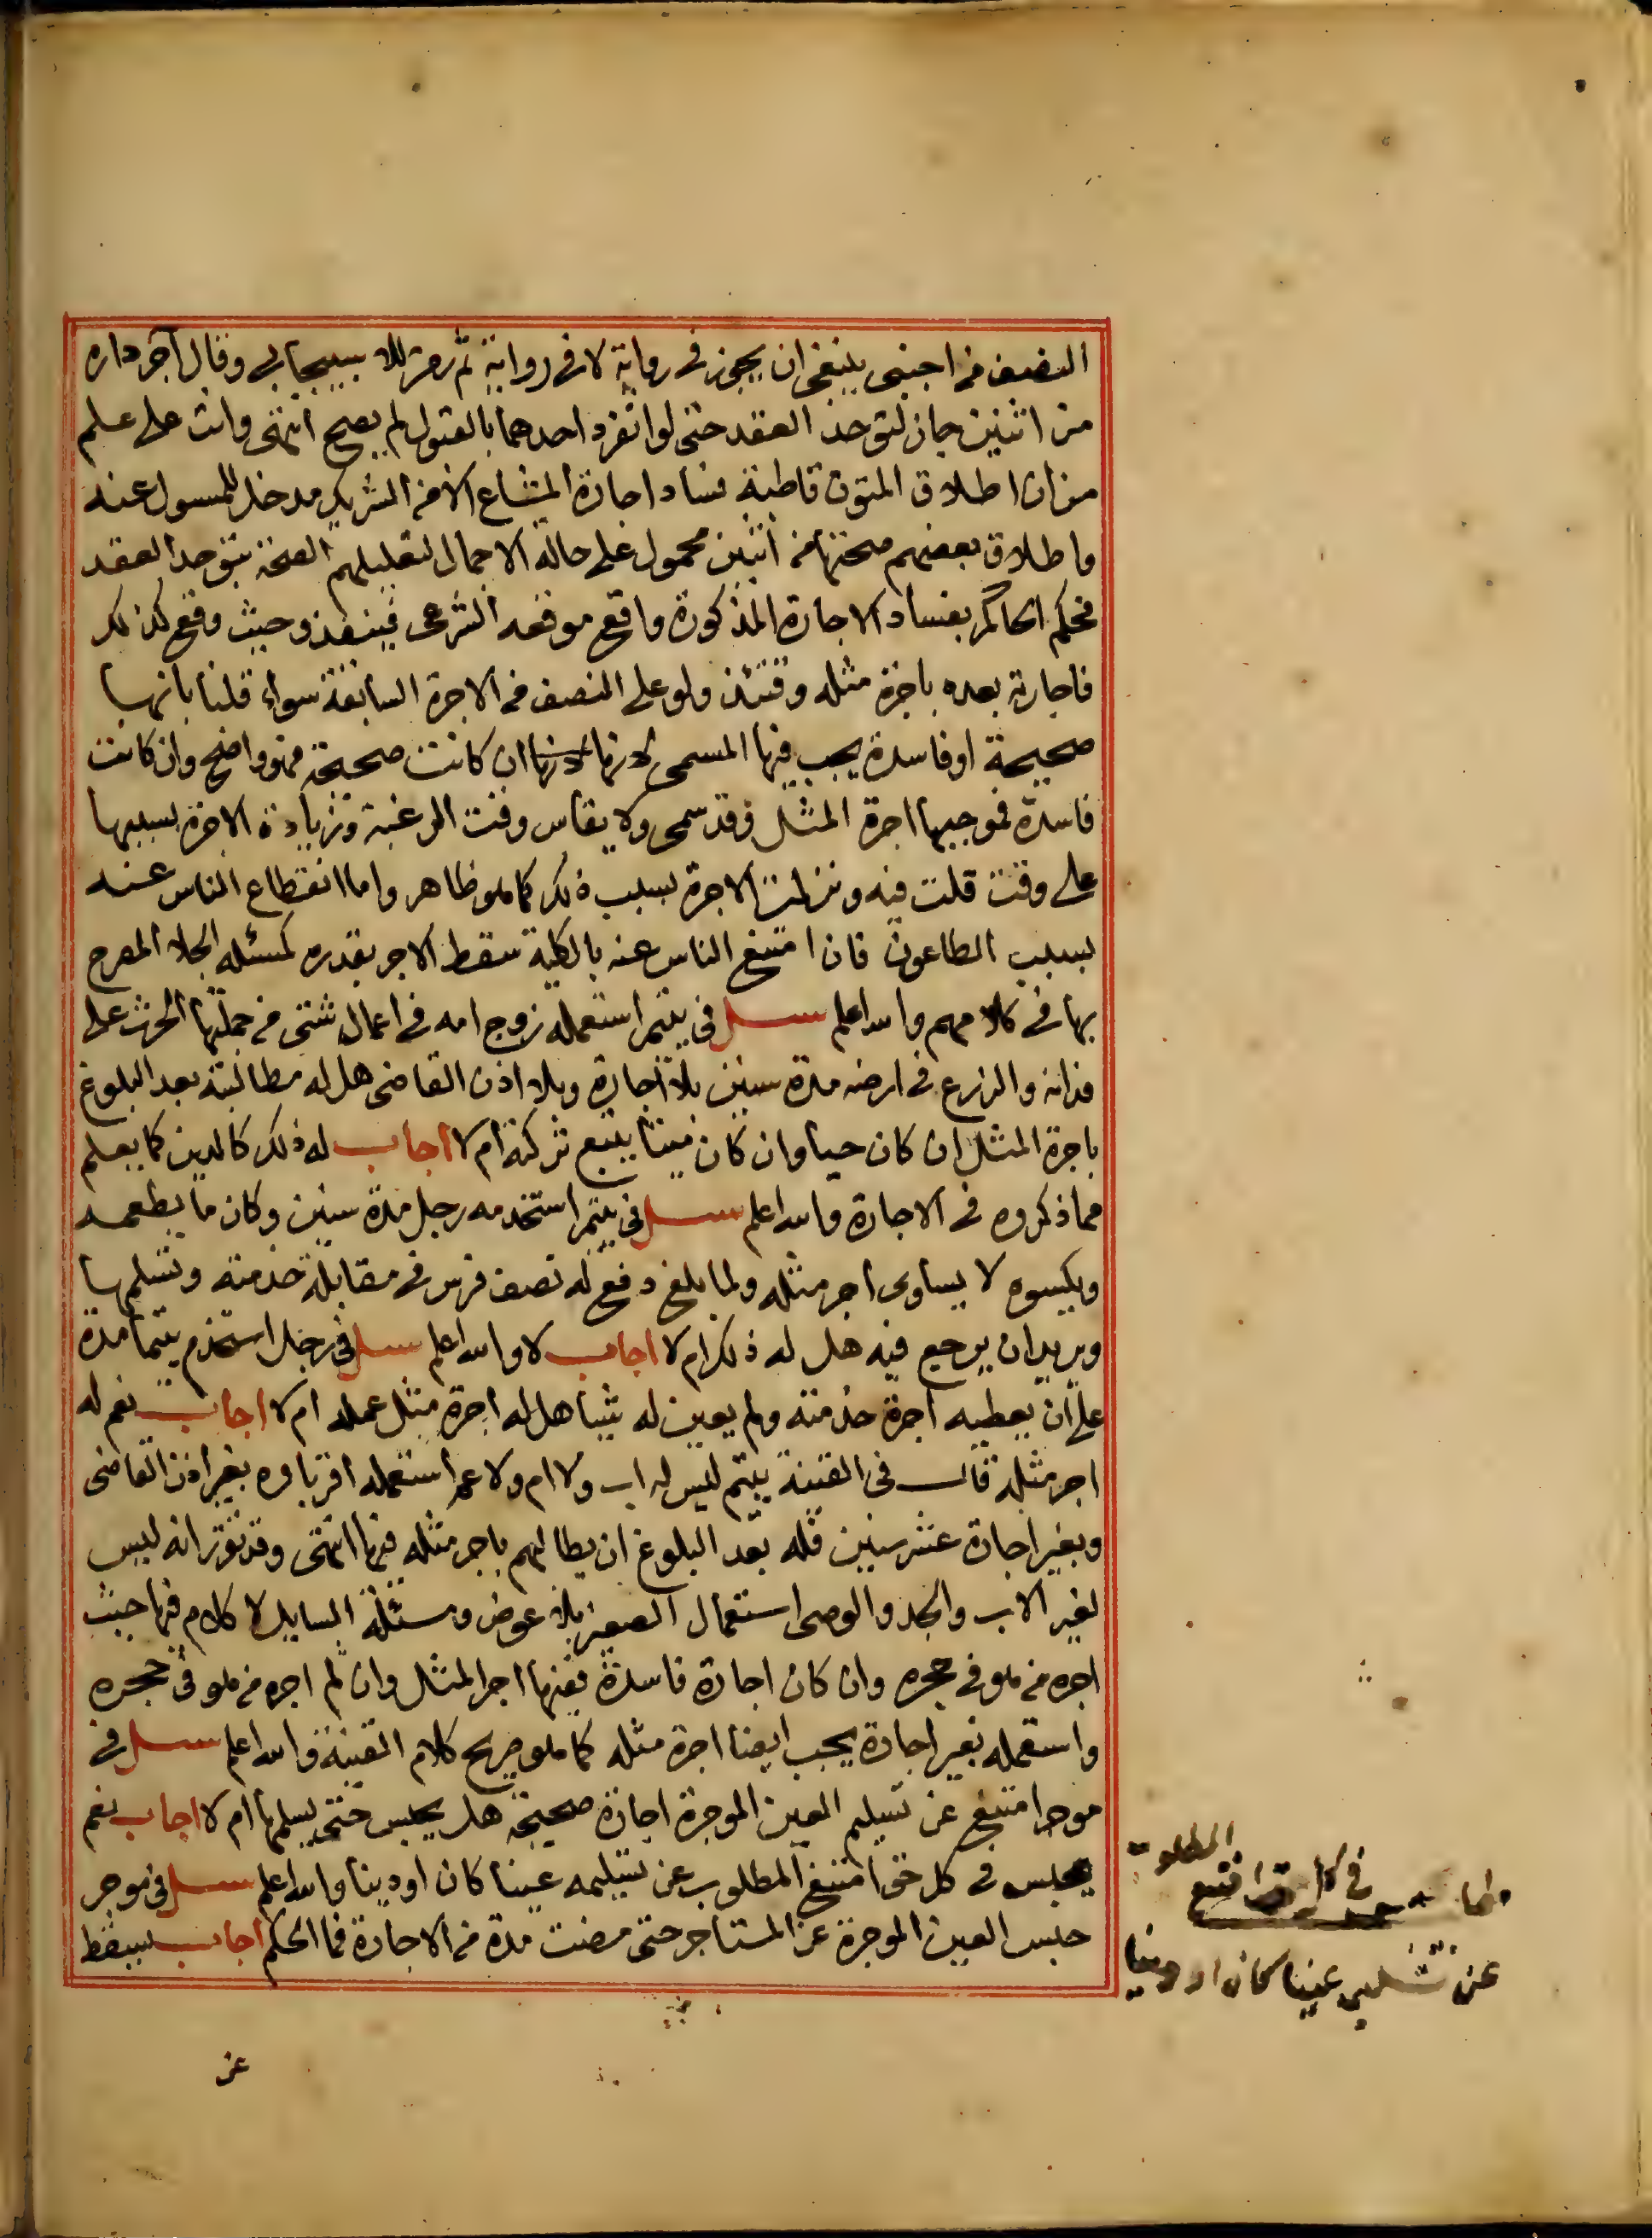 النصف من اجنبي ينبغي ان يجوز في رواية لا في رواية ثم رمز للاسبيجابي وقال آجر داره
من اثنين جاز لتوحد العقد حتى لو انفرد احدهما بالقبول لم يصح انتهى وانت على علم
من ان اطلاق المتون قاطبة فساد اجارة المشاع الا من الشريك مدخل للمسول عنه
واطلاق بعضهم صحتها من اثنين محمول على حالة الاجمال لتعليلهم الصحة بتوحد العقد
فحكم الحاكم بفساد الاجارة المذكورة واقع موقعه الشرعي فينفذ وحيث وقع كذلك
فاجارته بعده باجرة مثله وقتئذ ولو على النصف من الاجرة السابقة سواء قلنا بانها
صحيحة او فاسدة يجب فيها المسمى لانها ان كانت صحيحة فهو واضح وان كانت
فاسدة فموجبها اجرة المثل وقد سمى ولا يقاس وقت الرغبة وزيادة الاجرة بسببها
على وقت قلت فيه ونزلت الاجرة بسبب ذلك كما هو ظاهر واما انقطاع الناس عنه
بسبب الطاعون فان امتنع الناس عنه بالكلية سقط الاجر بقدره كمسئلة الجلاء المصرح
بها في كلامهم والله اعلم سئل في يتيم استعمله زوج امه في اعمال شتى من جملتها الحرث على
فدانه والزرع في ارضه مدة سنين بلا اجارة وبلا اذن القاضي هل له مطالبته بعد البلوغ
باجرة المثل ان كان حيا وان كان ميتا يتبع تركته ام لا اجاب له ذلك كالدين كما يعلم
مما ذكروه في الاجارة والله اعلم سئل في يتيم استخدمه رجل مدة سنين وكان ما يطعمه
ويكسوه لا يساوي اجر مثله ولما بلغ دفع له نصف فرس في مقابلة خدمته وتسلمها
ويريد ان يرجع فيه هل له ذلك ام لا اجاب لا والله اعلم سئل في رجل استخدم يتيما مدة
على ان يعطيه اجرة خدمته ولم يعين له شيئا هل له اجرة مثل عمله ام لا اجاب نعم له
اجر مثله قال في القنية يتيم ليس له اب ولا ام ولا عم استعمله اقرباوه بغير اذن القاضي
وبغير اجارة عشر سنين فله بعد البلوغ ان يطالبهم باجر مثله فيها انتهى وقد تقرر انه ليس
لغير الاب والجد والوصي استعمال الصغير بلا عوض ومسئلة السايل لا كلام فيها حيث
اجره من هو في حجره وان كان اجارة فاسدة ففيها اجر المثل وان لم اجره من هو في حجره
واستعمله بغير اجارة يجب ايضا اجرة مثله كما هو صريح كلام القنية والله اعلم سئل في
موجر امتنع عن تسليم العين الموجرة اجارة صحيحة هل يحبس حتى يسلمها ام لا اجاب نعم
يحبس في كل حق امتنع المطلوب عن تسليمه عينا كان او دينا والله اعلم سئل في موجر
حبس العين الموجرة عن المستاجر حتى مضت مدة من الاجارة فما الحكم اجاب يسقط
المطلوب
في كل حق امتنع
عن تسليمه عينا كان او دينا
عن